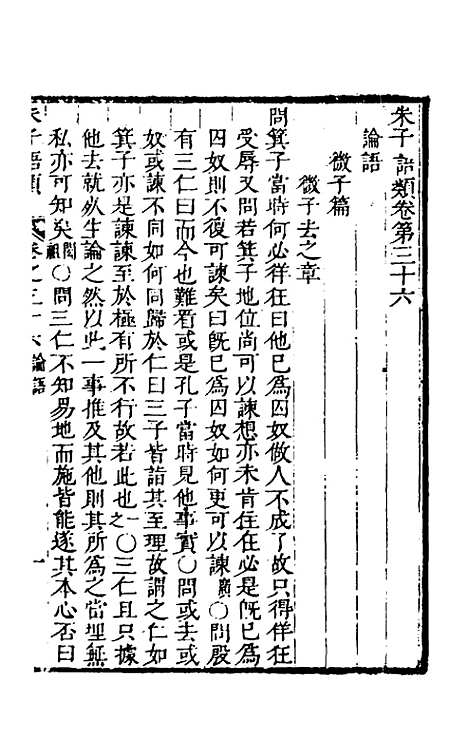 朱子語類卷第三十六
論語
微子篇
微子去之章
問箕子當時何必徉狂曰他已爲囚奴做人不成了故只得徉狂
受辱又問若箕子地位尚可以諫想亦未肯住在必是旣已爲
囚奴則不復可諫矣曰旣已爲囚奴如何更可以諫廣○問殷
有三仁曰而今也難看或是孔子當時見他事實○問或去或
奴或諫不同如何同歸於仁曰三子皆詣其至理故謂之仁如
箕子亦是諫諫至於極有所不行故若此也一之○三仁且只據
他去就死生論之然以此一事推及其他則其所爲之當理無
私亦可知矣閎祖○問三仁不知易地而施皆能遂其本心否曰
朱子語類 卷之三十六論語 一